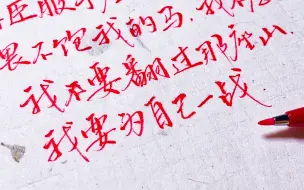 臣服于
喂不饱我的马,我
我不要翻过那座山
我要为自己一战